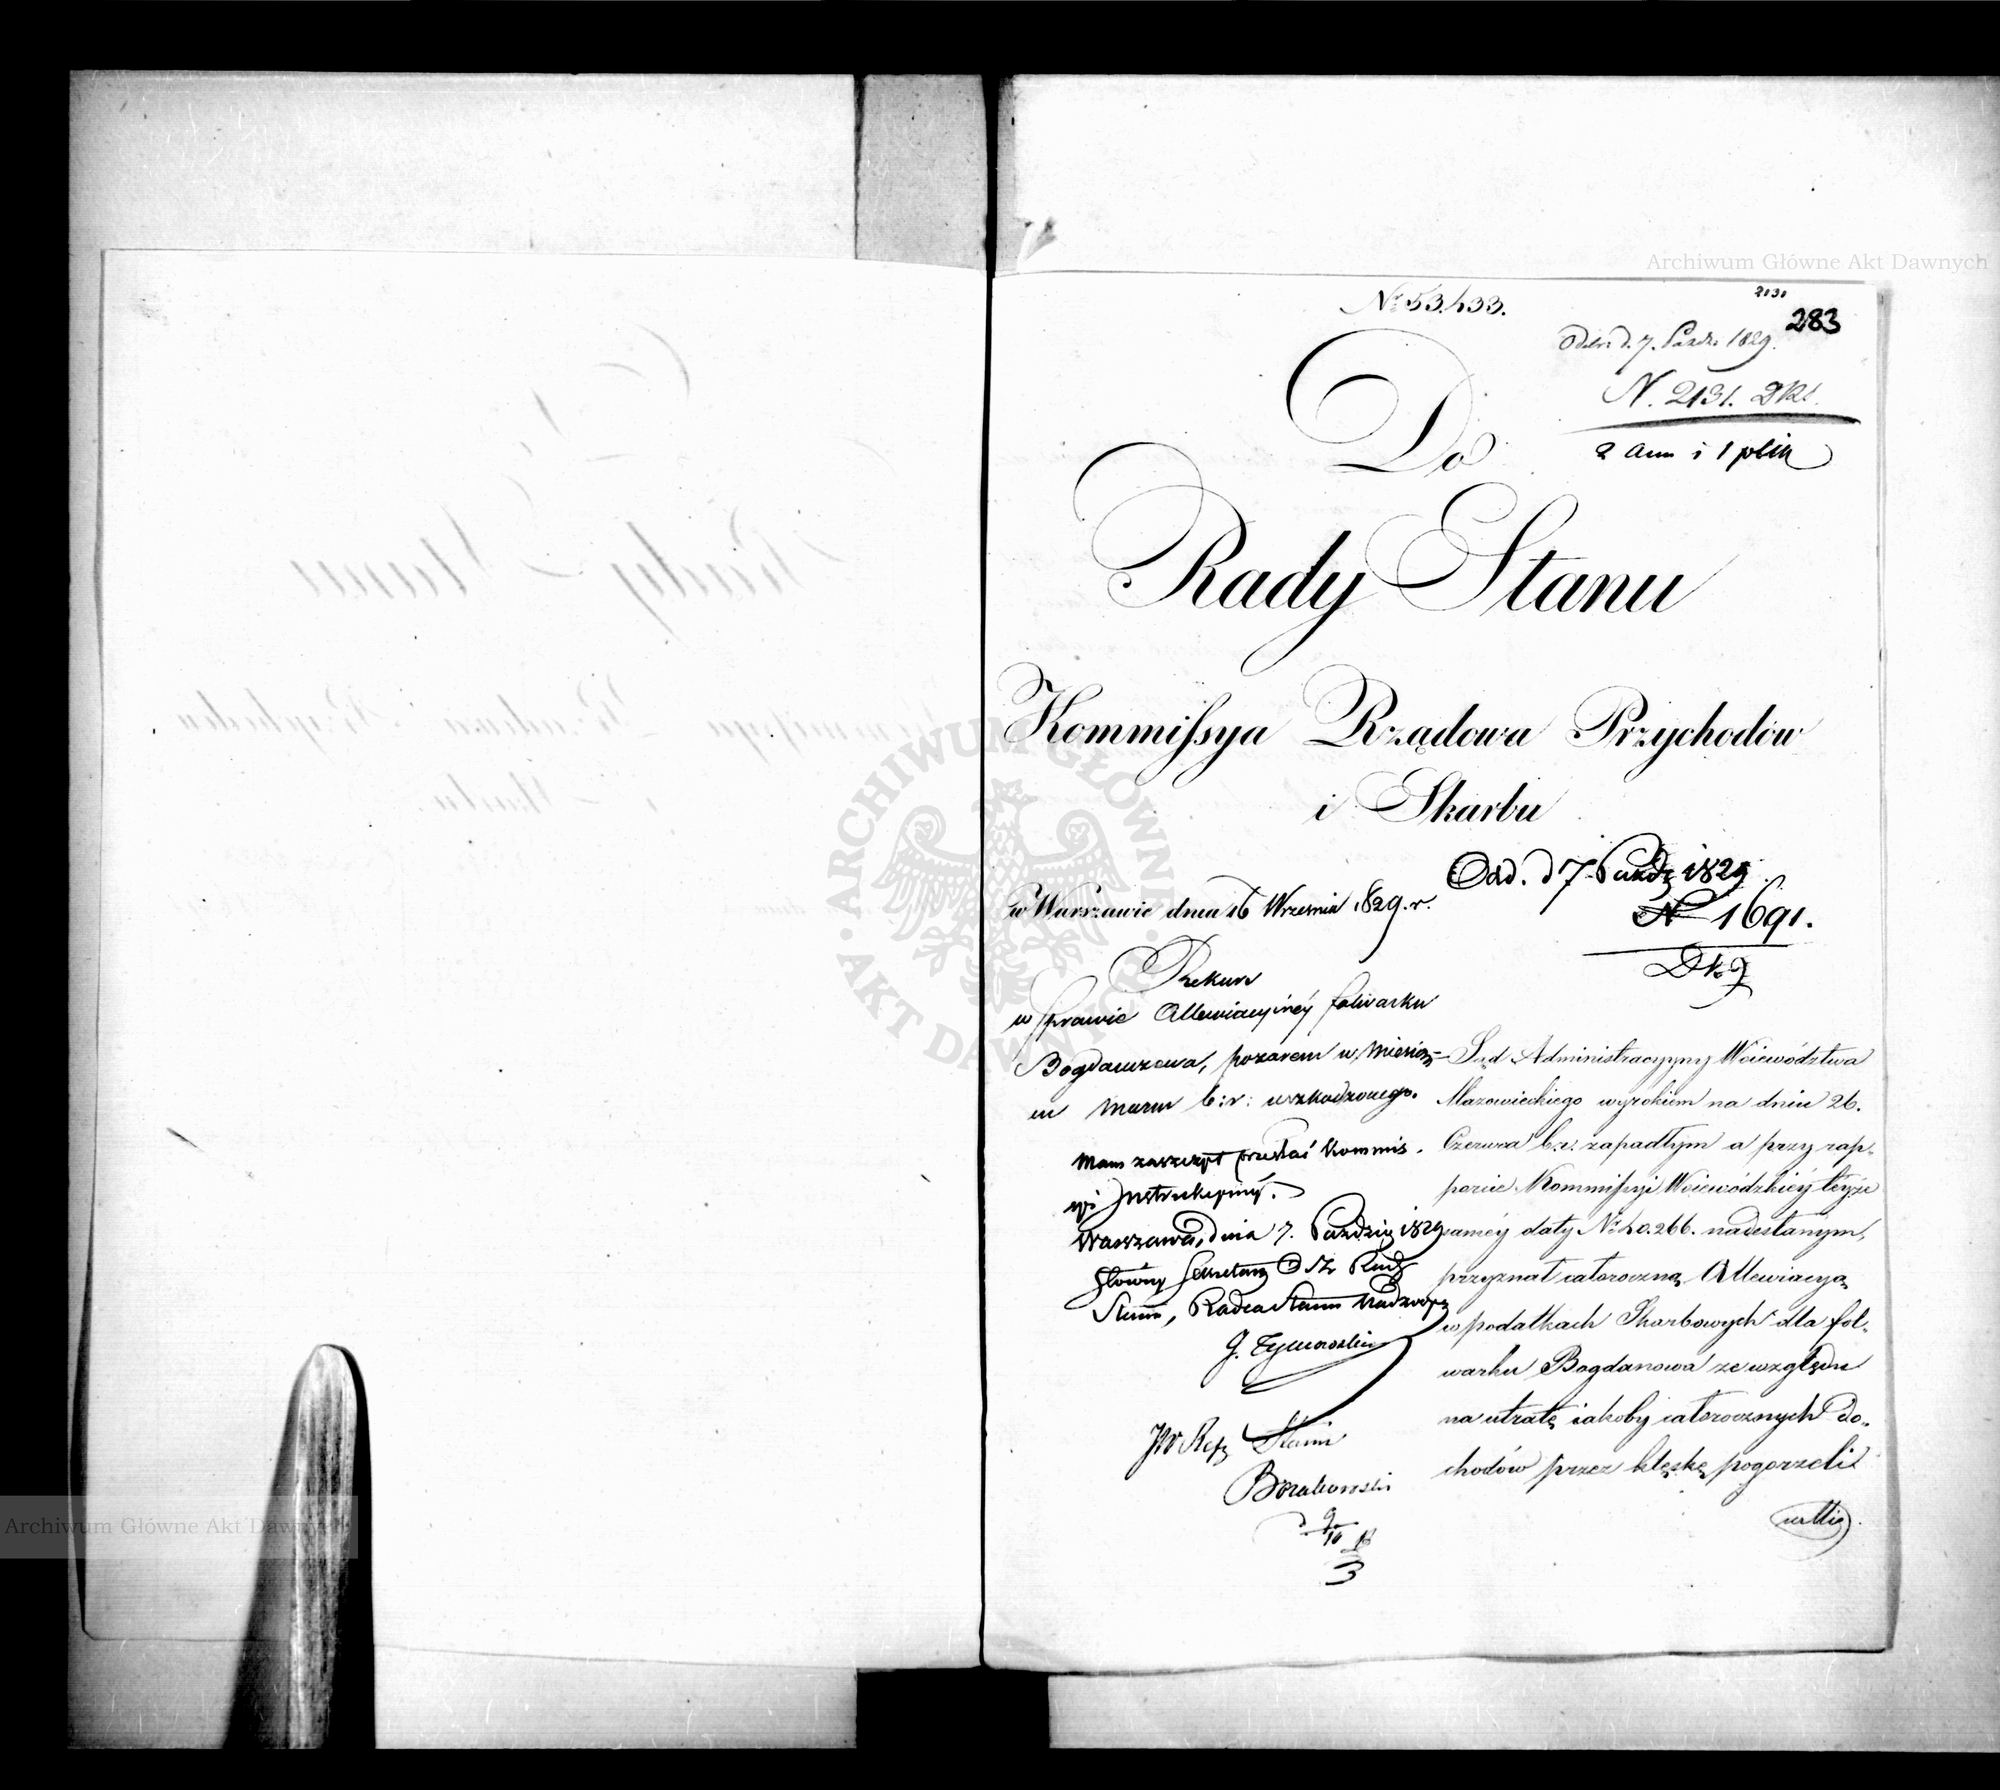 Archiwum Główne Akt Dawnych
2131
283
Nr 53,433.
Odebr. d. 7. Paźdz. 1829.
N. 2131. DKS.
2 Ann i 1 plik
Do
Rady Stanu
Kommissya Rządowa Przychodów
i Skarbu
w Warszawie dnia 16 Września 1829. r.
Odd. d 7 Paźdz 1829
N 1691.
Rekurs
w sprawie Allewiacyinéy folwarku
Bogdanzewa, pożarem w Miesią-
cu Marcu b: r: uszkodzonego.
Mam zaszczyt przesłać Kommis.
syi Instrukcyinéy.
Warszawa, dnia 7. Paździer 1829
Główny Sekretarz Rady
Stanu, Radca Stanu Nadzwyc
J. Tymowski
JW Refz Stanu
Brzakowski
d. 9/10
3
Sąd Administracyjny Woiewództwa
Mazowieckiego wyrokiem na dniu 26.
Czerwca b.r. zapadłym a przy rap-
porcie Kommissyi Woiewódzkiéy téyże
saméy daty Nr 40.266. nadesłanym,
przyznał całoroczną Allewiacyą
w podatkach Skarbowych dla fol-
warku Bogdanowa ze względu
na utratę iakoby całorocznych do-
chodów przez klęskę pogorzeli
Archiwum Główne Akt Dawnych
ARCHIWUM GŁÓWNE · AKT DAWNYCH ·